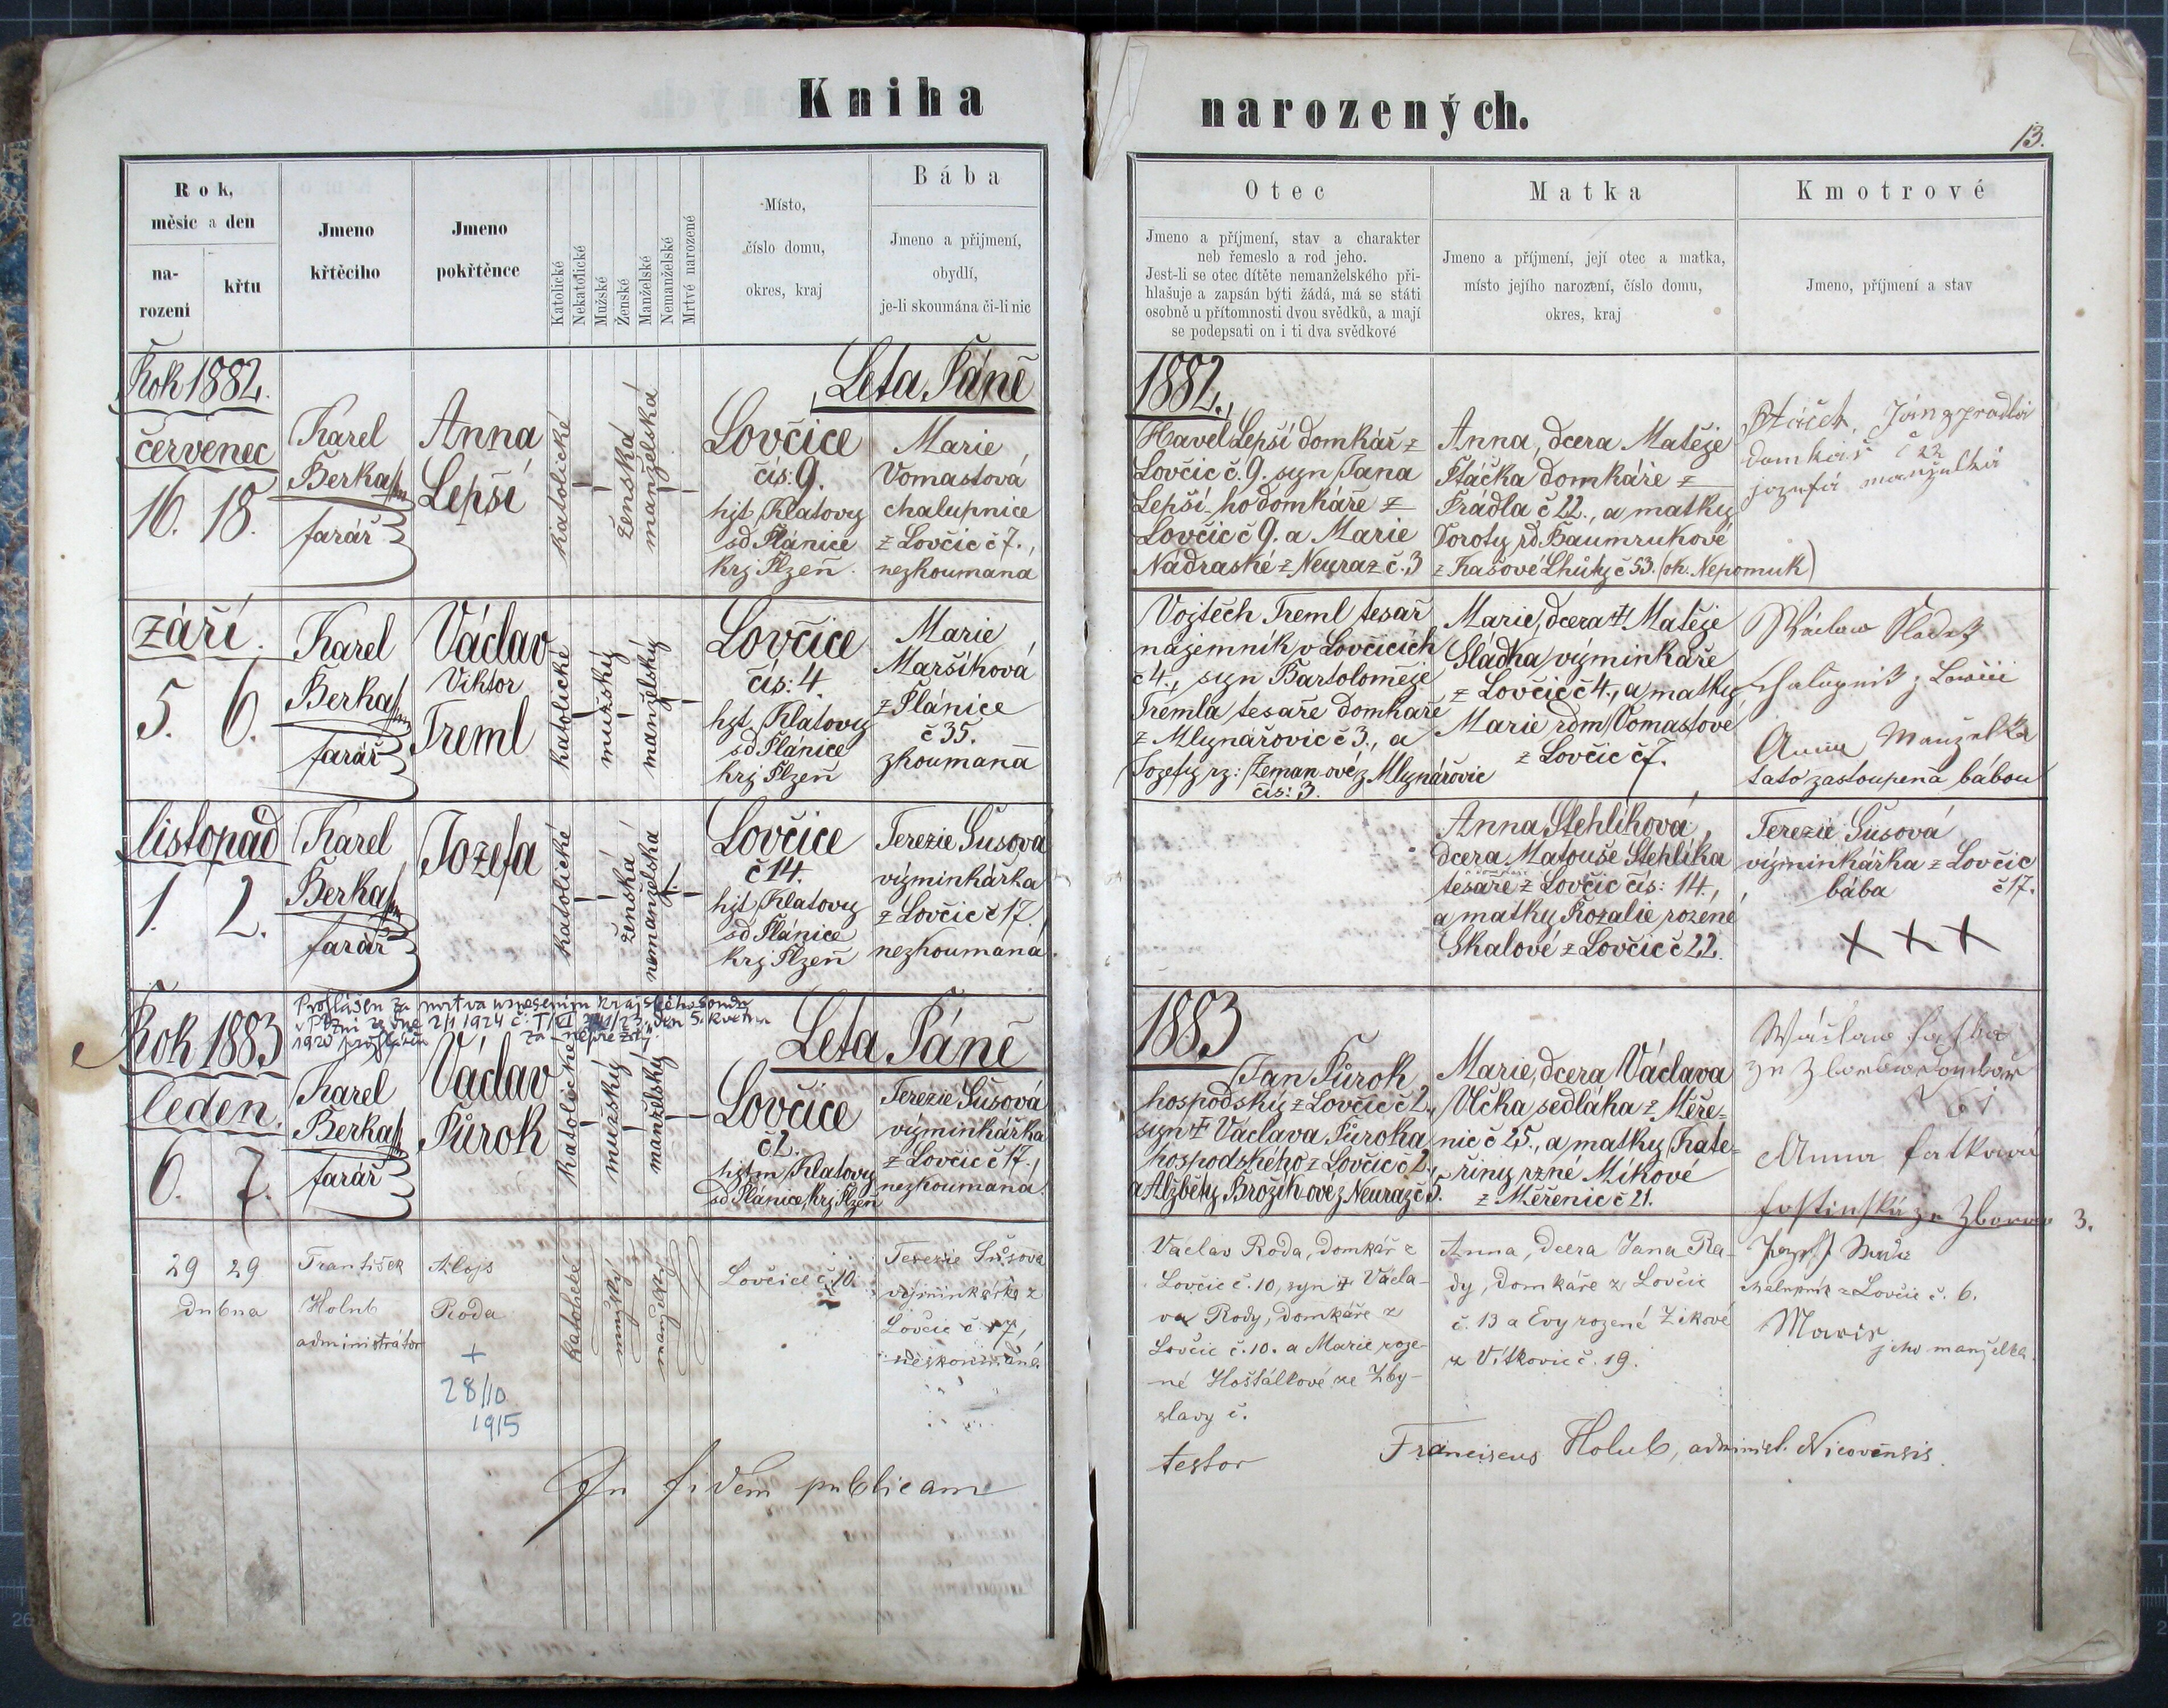 Kniha narozených.
13.
Rok,
měsíc a den
na-
rození
křtu
Jmeno
křtěcího
Jmeno
pokřtěnce
Katolické
Nekatolické
Mužské
Ženské
Manželské
Nemanželské
Mrtvé narozené
Místo,
číslo domu,
okres, kraj
Bába
Jmeno a přijmení,
obydlí,
je-li skoumána či-li nic
Otec
Jmeno a příjmení, stav a charakter
neb řemeslo a rod jeho.
Jest-li se otec dítěte nemanželského při-
hlašuje a zapsán býti žádá, má se státi
osobně u přítomnosti dvou svědků, a mají
se podepsati on i ti dva svědkové
Matka
Jmeno a příjmení, její otec a matka,
místo jejího narození, číslo domu,
okres, kraj
Kmotrové
Jmeno, příjmení a stav
Rok 1882.
Leta Páně
1882.
červenec
16. 18.
Karel
Berka
farář
Anna
Lepší
katolické
ženská
manželská
Lovčice
čís: 9.
hjt Klatovy
sd Plánice
krj Plzeň.
Marie
Vomastová
chalupnice
z Lovčic č 7.,
nezkoumana
Havel Lepší domkář z
Lovčic č. 9. syn Jana
Lepší-ho domkáře z
Lovčic č 9. a Marie
Nádraské z Neuraz č. 3
Anna, dcera Matěje
Ptáčka domkáře z
Prádla č 22., a matky
Doroty rd. Baumrukové
z Kašové Lhůty č 53. (ok. Nepomuk)
Ptáček, Jan z pradla
domkař č 22
jozefa manželka
září.
5. 6.
Karel
Berka
farář
Václav
Viktor
Treml
katolické
mužský
manželský
Lovčice
čís: 4.
hjt Klatovy
sd Plánice
krj Plzeň
Marie
Maršíková
z Plánice
č 35.
zkoumaná
Vojtěch Treml tesař
najemník v Lovčicích
č 4., syn Bartoloměje
Tremla tesaře domkaře
z Mlynařovic č 3., a
Jozefy rz: Zeman-ové z Mlynářovic
čís: 3.
Marie, dcera † Matěje
Sládka výminkáře
z Lovčic č 4., a matky
Marie rdm Vomastové
z Lovčic č 7.
Václav Sladek
chalupnik z Lovčic
Anna Manželka
tato zastoupena bábou
listopad
1. 2.
Karel
Berka
farář
Jozefa
katolické
ženská
nemanželská
Lovčice
č 14.
hjt Klatovy
sd Plánice
krj Plzeň
Terezie Šusová
výminkářka
z Lovčic č 17.
nezkoumaná
Anna Stehlíková,
dcera Matouše Stehlíka
tesaře z Lovčic čís: 14.,
a matky Rozalie rozené
Skalové z Lovčic č 22.
Terezie Šusová
výminkářka z Lovčic
bába č 17.
+ + +
Prohlášen za mrtva usnesením krajského soudu
v Plzni ze dne 2/1 1924 č. T VI /23. Den 5. květn
1920 prohlášen za nepřežitý.
Rok 1883
Leta Páně
1883
leden.
6. 7.
Karel
Berka
farář
Václav
Půrok
katolické
mužský
manželský
Lovčice
č 2.
hjtm Klatovy
sd Plánice, krj Plzeň
Terezie Šusová
výminkářka
z Lovčic č 17.,
nezkoumána.
Jan Půrok
hospodský z Lovčic č 2.,
syn † Václava Půroka
hospodského z Lovčic č 2.,
a Alžběty Brožíkové z Neuraz č 5.
Marie, dcera Václava
Vlčka sedláka z Měře-
nic č 25., a matky Kate-
řiny rzné Míkové
z Měřenic č 21.
Anna
3.
29 29
dubna
František
Holub
administrátor
Alojs
Roda
+
28/10
1915
katolické
mužský
manželský
Lovčice č. 10.
Terezie Šusova
výminkářka z
Lovčic č. 17,
neskoumáná.
Vaclav Roda, domkář z
Lovčic č. 10, syn † Václa-
va Rody, domkáře z
Lovčic č. 10. a Marie roze-
né Hoštálkové ze Zby-
slavy č.
Anna, dcera Jana Ra-
dy, domkáře z Lovčic
č. 13 a Evy rozené Zikové
z Vítkovic č. 19.
chalupník z Lovčic č. 6.
Marie
jeho manželka.
In fidem publicam
testor Franciscus Holub, administ. Nicovensis.